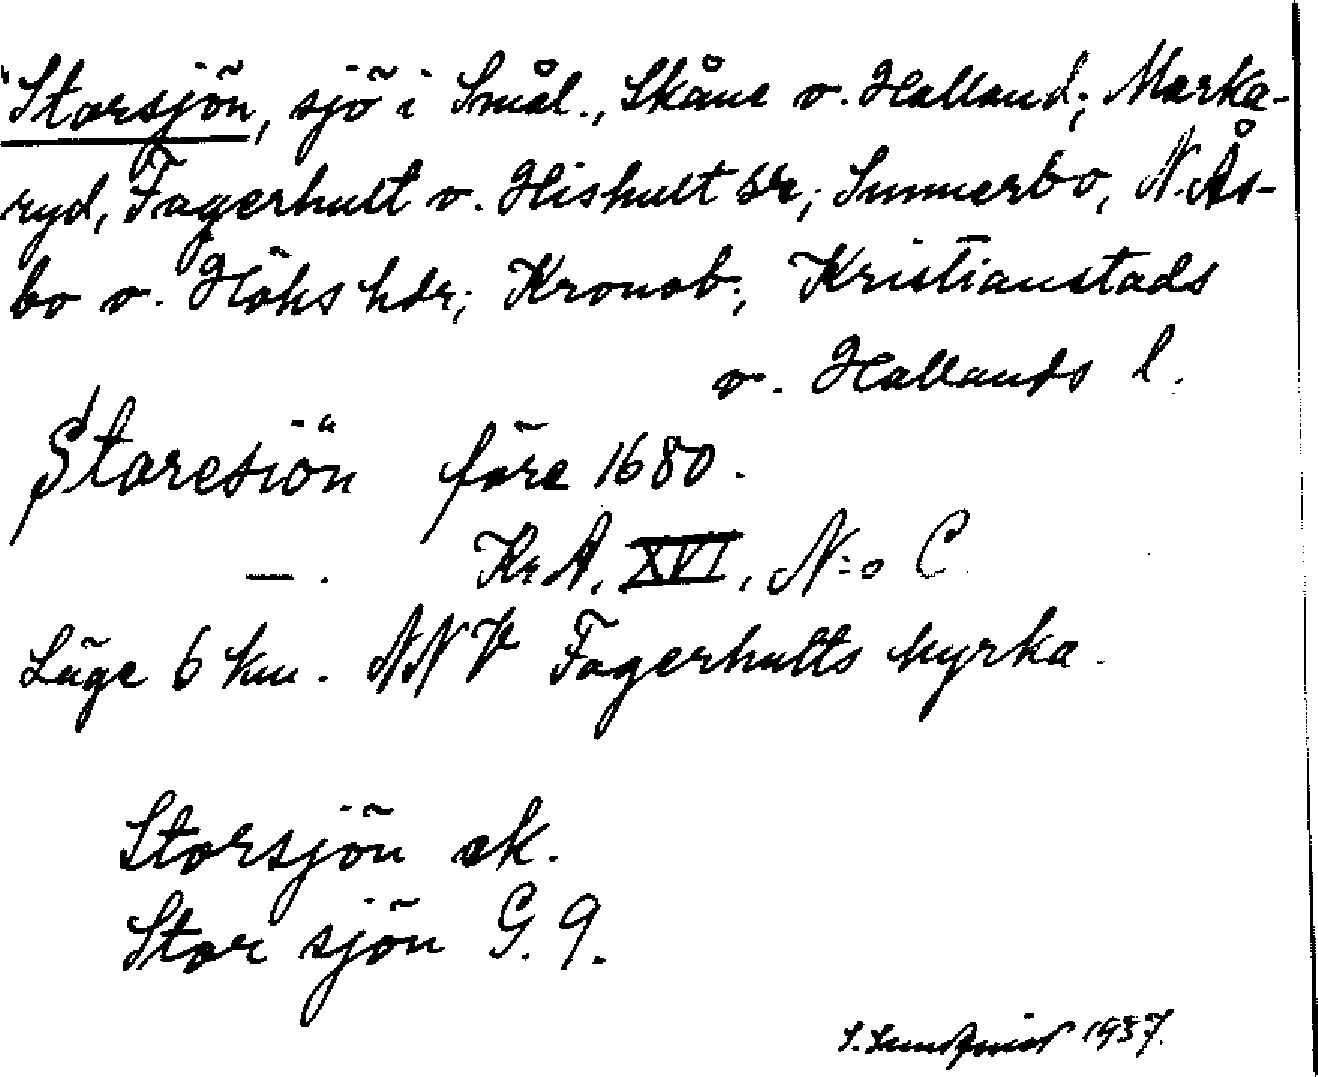 Storsjön, sjö i Smål., Skåne o. Halland; Marka-
ryd, Fagerhult o. Hishult sr; Sunnerbo, N. Ås-
bo o. Höks hdr; Kronob., Kristianstads
o. Hallands l.
Storesiön före 1680.
— . Kr. A. XVI, N:o C
Läge 6 km. NNV Fagerhults kyrka.
Storsjön ek.
Stor sjön G. 9.
S. Sundqvist 1937.